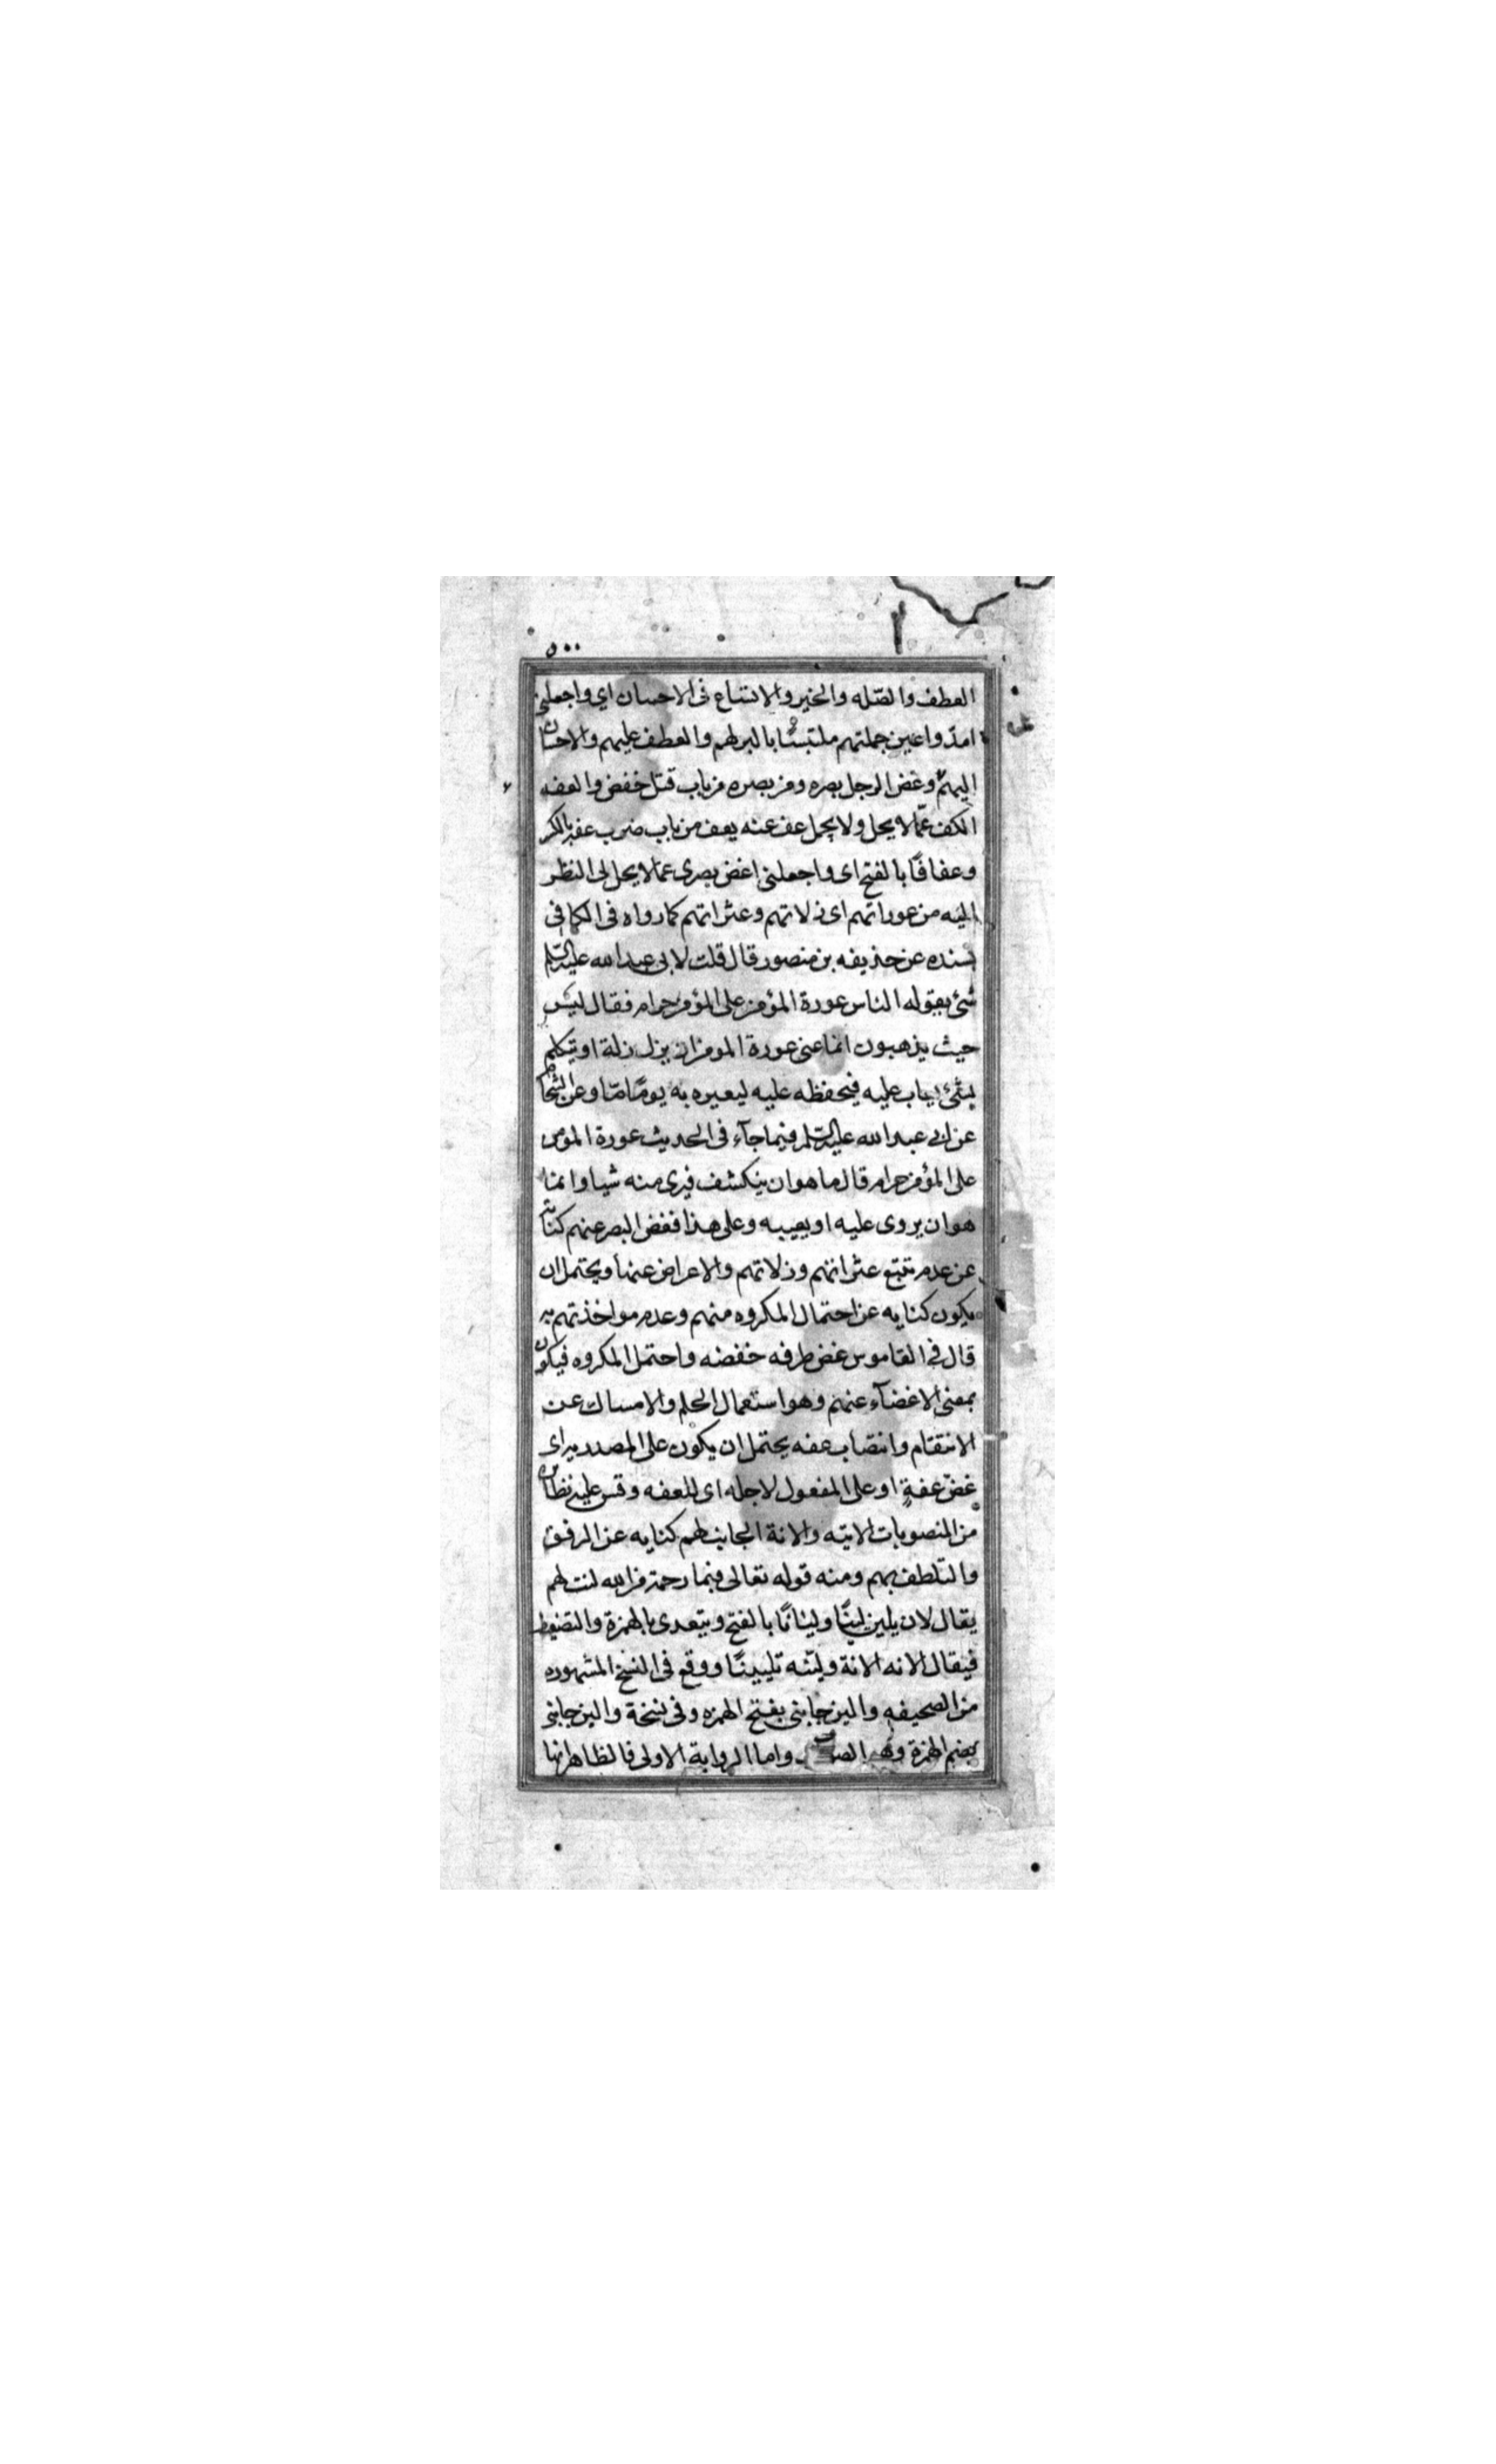 ٥٠٠
العطف والصّله والخير والاتساع فى الاحسان اي واجعلنى
امدّ واعين جملتهم ملتبسًا بالبر لهم والعطف عليهم والاحسان
اليهم وغض الرجل بصره ومن بصره من باب قتل خفض والعفه
الكف عمّا لا يحل ولا يجمل عف عنه يعف من باب ضرب عفه بالكسر
وعفافًا بالفتح اى واجعلنى اغض بصرى عمّا لا يحل لى النظر
اليه من عوراتهم اى زلاتهم وعثراتهم كما رواه فى الكافى
بسنده عن حذيفه بن منصور قال قلت لابى عبد الله عليه السّلم
شئ يقوله الناس عورة المؤمن على المؤمن حرام فقال ليس
حيث يذهبون انما عنى عورة المومن ان يزل زلة او يتكلم
بشئ يعاب عليه فيحفظه عليه ليعيره به يومًا مّا وعن الشحام
عن ابى عبد الله عليه السّلم فيما جآء فى الحديث عورة المؤمن
على المؤمن حرام قال ما هو ان ينكشف فيرى منه شيا وانما
هو ان يروى عليه او يعيبه وعلى هذا فغض البصر عنهم كناية
عن عدم تتبع عثراتهم وزلاتهم والاعراض عنها ويحتمل ان
يكون كنايه عن احتمال المكروه منهم وعدم مواخذتهم به
قال فى القاموس غض طرفه خفضه واحتمل المكروه فيكون
بمعنى الاغضآء عنهم وهو استعمال الحلم والامساك عن
الانتقام وانتصاب عفه يحتمل ان يكون على المصدريه اى
غضّ عفةٍ او على المفعول لاجله اى للعفه وقس عليه نظائره
من المنصوبات الاتيّه والانة الجانب لهم كنايه عن الرفق
والتلطف بهم ومنه قوله تعالى فبما رحمة من الله لنت لهم
يقال لان يلين لينًا وليانًا بالفتح ويتعدى بالهمزة والتضعيف
فيقال الانه الانة وليّنه تليينًا ووقع فى النسخ المشهوره
من الصحيفه والين جانبى بفتح الهمزه وفى نسخة والين جانبى
بضم الهمزة واما الرواية الاولى فالظاهر انها